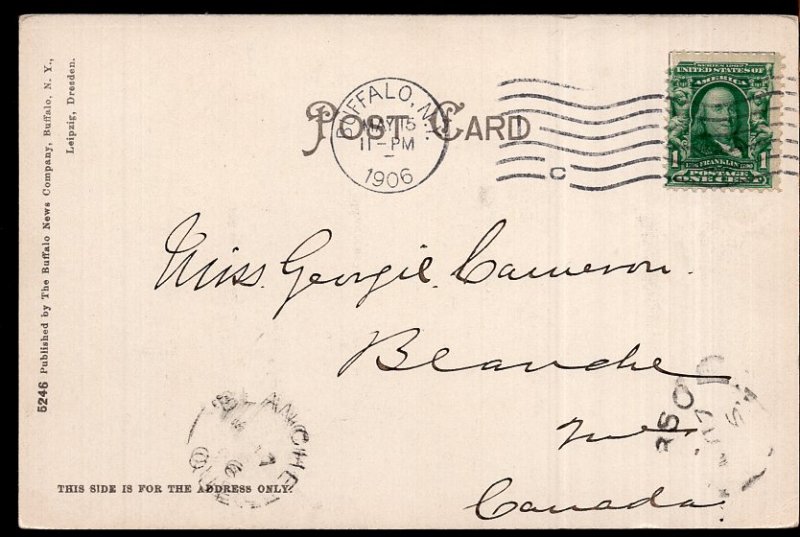 POST CARD
BUFFALO, N.Y.
MAY 15
11-PM
1906
C
SERIES 1902
UNITED STATES OF
AMERICA
1 1
FRANKLIN
POSTAGE
ONE CENT
Miss. Georgie. Cameron.
Blanche
Canada
BLANCHE
QUE
5246 Published by The Buffalo News Company, Buffalo, N. Y.,
Leipzig, Dresden.
THIS SIDE IS FOR THE ADDRESS ONLY.